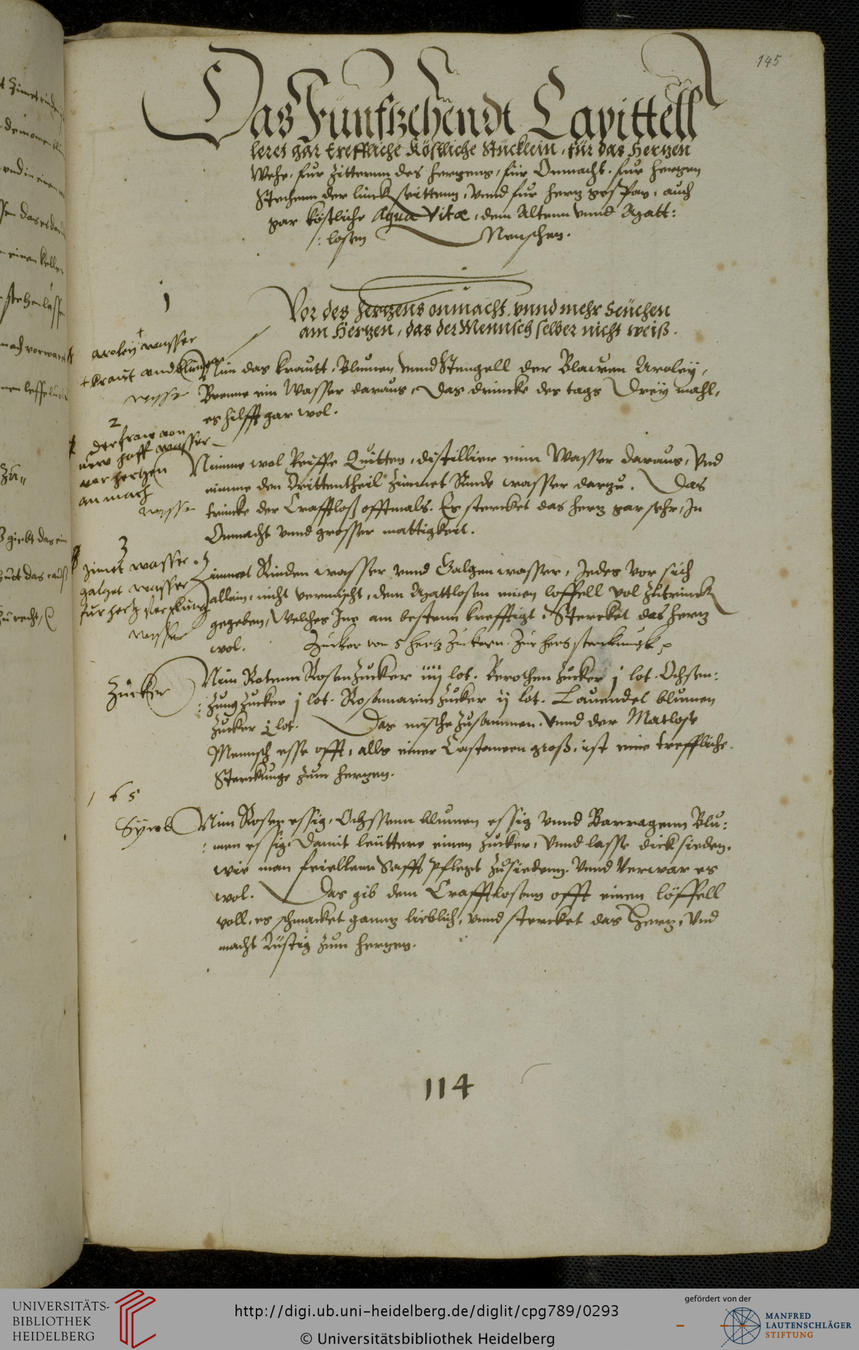 145
Das Funfzehendt Capittell
leret gar treffliche Köstliche Stücklein, für das Hertzen
Wehe, für Zitterenn des Hertzens, für Onmacht, für Hertzen
Stechenn der linck seittenn, vnnd für Hertz gespan, auch
gar köstliche Aqua Vitæ, dem Altenn vnnd Matt:
:losen Menschen.
1
Vor des Hertzens onmacht, vnnd mehr Seüchen
am Hertzen, das der Mennsch selber nicht weiß.
acoley wasser
kraut und blumen
wysse
Nim das krautt, Blumen vnnd Stengell der Blawen Acoley,
Brenne ein Wasser daraus, Das drincke des tags Drey mahl,
es hilfft gar wol.
2
der fraw von
new hoff wasser
vor hertzen
an mach
wysse
Nimme wol Reiffe Quitten, distilliere einn Wasser daraus, Vnd
nimme den Drittentheil Zimmet Rinde wasser darzu. Das
trincke der Crafftloß offtmals. Er stercket das hertz gar sehr, In
Onmacht vnnd grosser mattigkeit.
3
zimet wasser
galget wasser
fur hertz sterckung
wysse
Zimmet Rinden wasser vnnd Galgen wasser, Jedes vor sich
allein, nicht vermischt, dem Mattlosen einen löffell vol Zutrinck
gegeben, Welches Jnn am bestenn krefftigt, Stercket das Hertz
wol.
Zucker von 5 hertz Zuckern Zur hers sterckung
Zücker
Nim Rotenn Rosen Zucker iiij lot. Berochen Zucker j lot. Ochsen:
:Zung Zucker j lot. Rosamarin Zucker ij lot. Lauendel blumen
Zucker j lot. Das mische Zusammen. Vnnd der Matlose
Mennsch esse offt, alls einer Castaneen groß, ist eine treffliche
Sterckunge Zum hertzen.
65
Syrob
Nim Rosen essig, Ochssenn blumen essig vnnd Barragenn Blu:
:men essig, Damit leüttere einen Zucker, Vnnd lasse dick sieden,
wie man feiellenn Safft pflegt Zusiedenn. Vnnd Verwar es
wol. Das gib dem Crafftlosenn offt einen löffell
voll, es schmacket gannz lieblich, vnnd stercket das Hertz, Vnd
macht Lüstig Zum hertzen.
114
UNIVERSITÄTS-
BIBLIOTHEK
HEIDELBERG
http://digi.ub.uni-heidelberg.de/diglit/cpg789/0293
© Universitätsbibliothek Heidelberg
gefördert von der
MANFRED
LAUTENSCHLÄGER
STIFTUNG